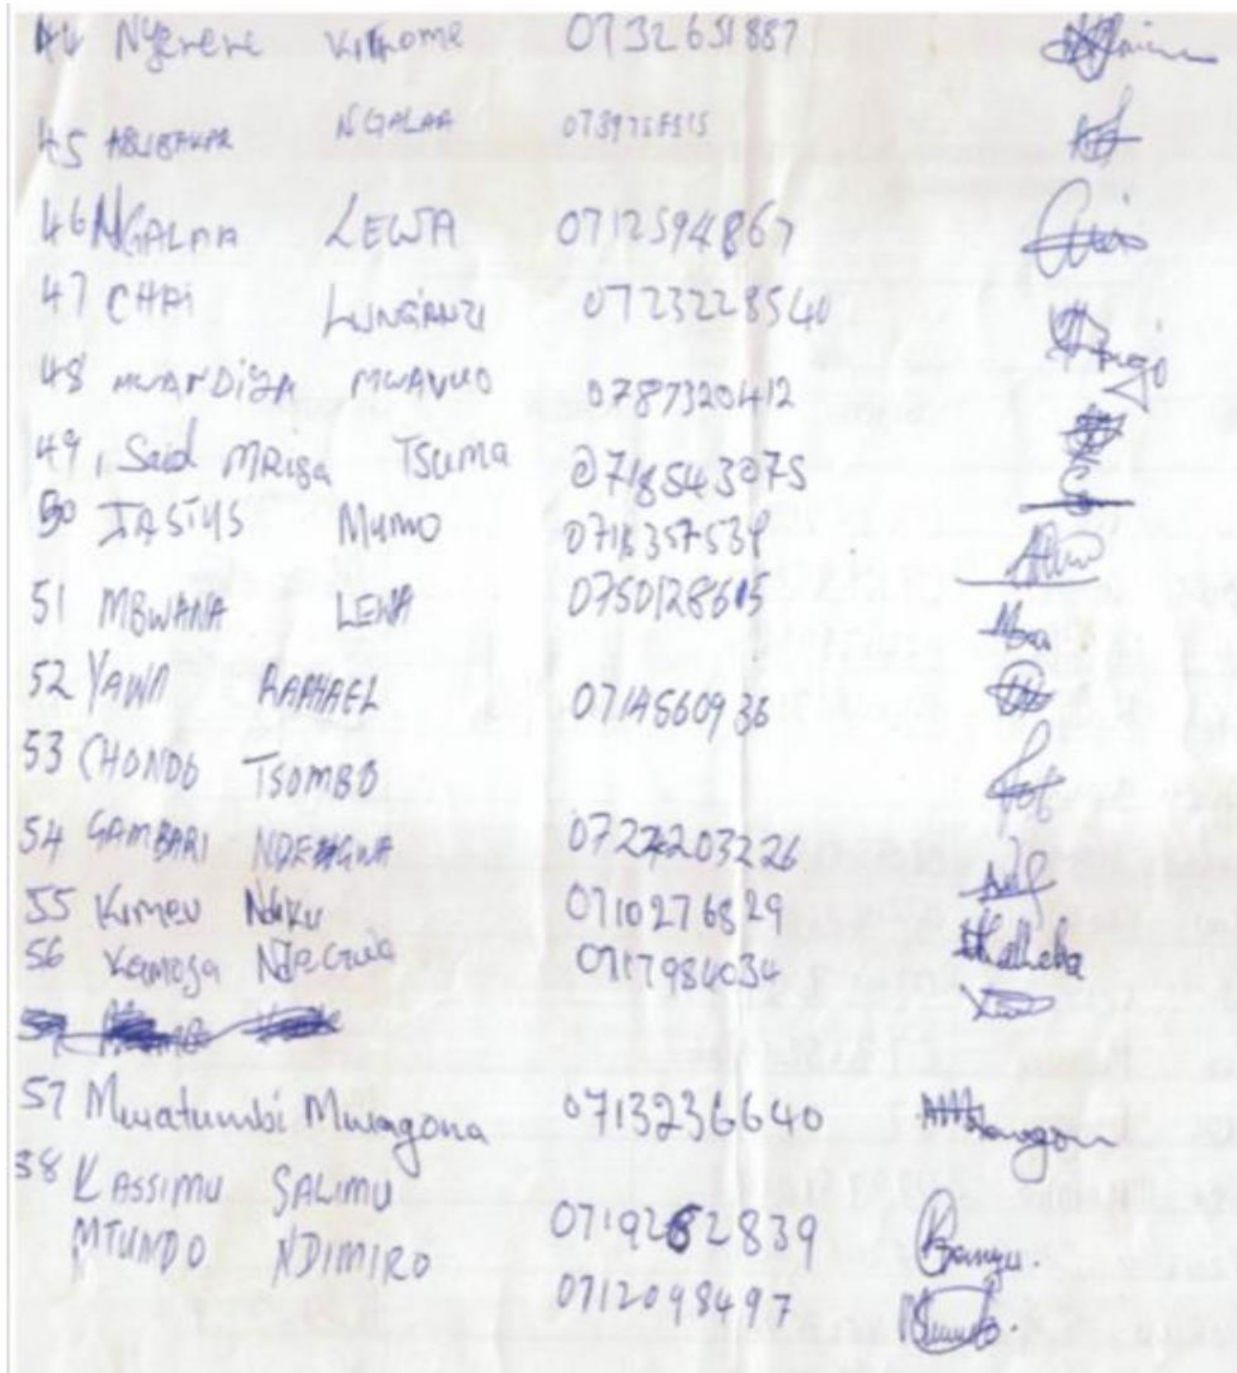 44 Nyerere Kithome 0732651887
45 ABUBAKAR NGALAA
46 NGALAA LEWA 0712594867
47 CHAI LUNGANZI 0723228540
48 MWANDIZA MWAVUO 0787320412
49, Said MRisa TSuma 0718543075
50 JASTUS Mumo 0718357539
51 MBWANA LEWA 0750128615
52 YAWA RAPHAEL 0714560936
53 CHONDO TSOMBO
54 GAMBARI NDEGWA
55 Kimeu Nduku 0710276829
56 Kamosa 0717984034
57 Mwatumbi Mwagona 0713236640
38 KASSIMU SALIMU
MTUNDO NDIMIRO 0719262839
0712098497